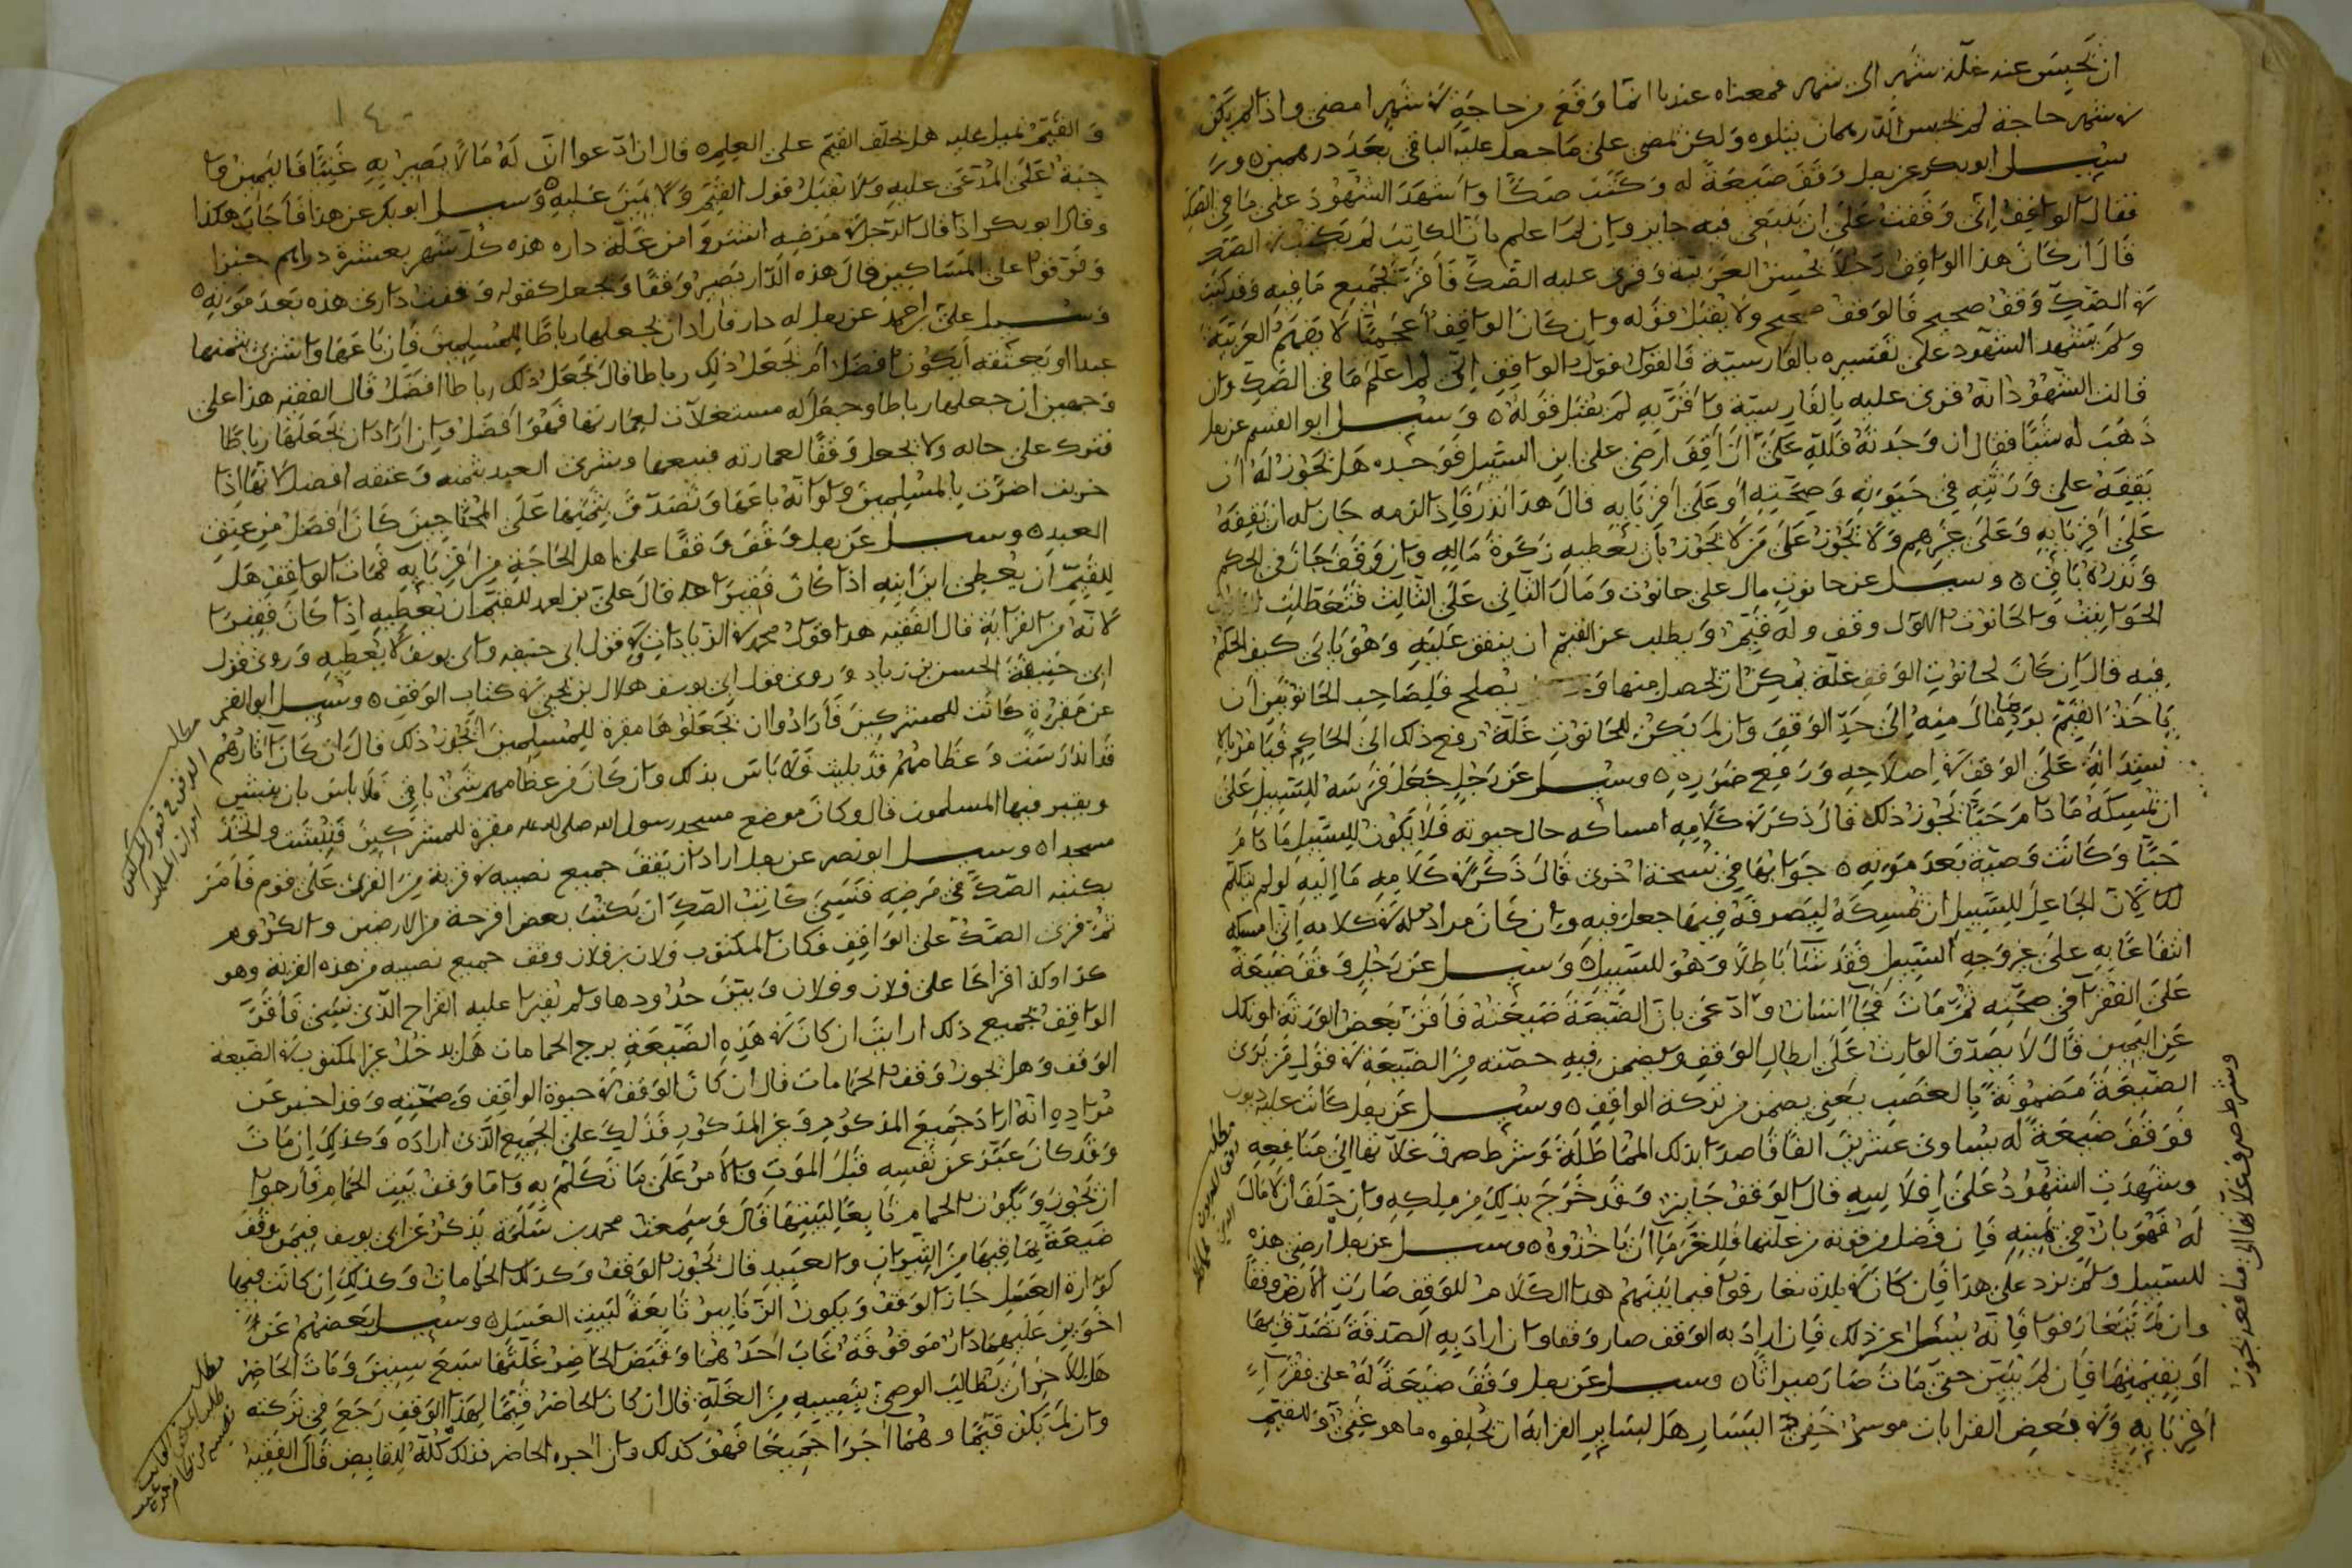 ان تحبس عنه غلة شهر الى شهر فمعناه عندنا انما وقع من حاجة في شهر امضى واذا لم يكن
في شهر حاجة لم تحبس الدرهمان ولكن تمضى على ما جعل عليه الباقي بعد درهمين ٥
سئل ابو بكر عن رجل وقف ضيعة له وكتب صكا واشهد الشهود على ما في الصك
فقال الواقف اني وقفت على ان بيعي فيه جايز وان لم اعلم بان الكاتب لم يكتب في الصك
قال ان كان هذا الواقف رجلا يحسن العربية وقرى عليه الصك فاقر بجميع ما فيه وقد كتب
في الصك وقف صحيح فالوقف صحيح ولا يقبل قوله وان كان الواقف اعجميا لا يفهم العربية
ولم يشهد الشهود على تفسيره بالفارسية فالقول قول الواقف انى لم اعلم ما في الصك وان
قالت الشهود انه قرى عليه بالفارسية واقر به لم يقبل قوله ٥ وسئل ابو القسم عن رجل
ذهب له شيا فقال ان وجدته فلله على ان اقف ارضى على ابن السبيل فوجده هل يجوز له ان
يقفه على ورثته في حيوته وصحته او على اقربايه قال هذا نذر فاذا لزمه كان له ان يقفه
على اقربايه وعلى غيرهم ولا يجوز على من لا يجوز بان يعطيه زكوة ماله وان وقف جاز في الحكم
ونذره باق ٥ وسئل عن حانوت مال على حانوت ومال الثاني على الثالث فتعطلت
الحوانيت والحانوت الاول وقف وله قيم ويطلب عن القيم ان ينفق عليه وهو يابى كيف الحكم
فيه قال ان كان لحانوت الوقف غلة يمكن ان تحصل منها يصلح فلصاحب الحانوتين ان
ياخذ القيم برد ما مال منه الى حد الوقف وان لم يكن للحانوت غلة رفع ذلك الى الحاكم فيامر بالا
ستدانة على الوقف في اصلاحه ورفع ضرره ٥ وسئل عن رجل جعل فرسه للسبيل على
ان يمسكه ما دام حيا يجوز ذلك قال ذكر في كلامه امساكه حال حيوته فلا يكون للسبيل ما دام
حيا وكانت وصية بعد موته ٥ جوابها في نسخة اخرى قال ذكر في كلامه ما اليه لو لم يتكلم
لكان لان الجاعل للسبيل ان يمسكه ليصرفه فيما جعل فيه وان كان مراده في كلامه انى امسكه
انتفاعا به على غير وجه السبيل فقد شيا باطلا وهو للسبيل ٥ وسئل عن رجل وقف ضيعة
على الفقرا في صحته ثم مات فجا انسان وادعى بان الضيعة ضيعته فاقر بعض الورثة او نكل
عن اليمين قال لا يصدق الوارث على ابطال الوقف ويضمن فيه حصته من الضيعة في قول من يرى
الضيعة مضمونة بالغصب يعني يضمن من تركة الواقف ٥ وسئل عن رجل كانت عليه ديون
فوقف ضيعة له يساوى عشرين الفا قاصدا بذلك المماطلة وشرط صرف غلاتها الى منافعه
وشهدت الشهود على افلاسه قال الوقف جايز وقد خرج بذلك من ملكه وان حلف ان لا مال
له فهو بار في يمينه فان فضل من قوته من غلتها فللغرما ان ياخذوه ٥ وسئل عن رجل ارضى هذه
للسبيل ولم يزد على هذا فان كان في بلدة تعارفوا فيما بينهم هذا الكلام للوقف صارت الارض وقفا
وان لم يتعارفوا فانه يسئل عن ذلك فان اراد به الوقف صار وقفا وان اراد به الصدقة تصدق بها
او بقيمتها فان لم يتبين حتى مات صار ميراثا ٥ وسئل عن رجل وقف ضيعة له على فقراء
اقربايه وفي بعض القرابات موسر خفى اليسار هل لساير القرابة ان يحلفوه ما هو غنى او للقيم
وشرط صرف غلاتها الى منافعه يجوز
مطلب
والقيم يميل عليه هل يحلف القيم على العلم ٥ قال ان ادعوا ان له مالا يصير به غنيا فاليمين وا
جبة على المدعى عليه ولا يقبل قول القيم ولا يمين عليه ٥ وسئل ابو بكر عن هذا فاجاب هكذا
وقال ابو بكر اذا قال الرجل في مرضه اشتروا من غلة داره هذه كل شهر بعشرة دراهم خبزا
وفرقوا على المساكين قال هذه الدار يصير وقفا ويجعل كقوله وقفت داري هذه بعد موته ٥
وسئل على بن احمد عن رجل له دار فاراد ان يجعلها رباطا للمسلمين فان باعها واشترى بثمنها
عبدا او يعتقه ايكون افضل ام يجعل ذلك رباطا قال يجعل ذلك رباطا افضل قال الفقيه هذا على
وجهين ان جعلها رباطا وجعل له مستغلات لعمارتها فهو افضل وان اراد ان يجعلها رباطا
فترك على حاله ولا يجعل وقفا لعمارته فبيعها ويشرى العبد بثمنه وعتقه افضل لانها اذا
خربت اضرت بالمسلمين ولو انه باعها وتصدق بثمنها على المحتاجين كان افضل من عتق
العبد ٥ وسئل عن رجل وقف وقفا على اهل الحاجة من اقربايه فمات الواقف هل
للقيم ان يعطى ابن ابنه اذا كان فقيرا قال على بن احمد للقيم ان يعطيه اذا كان فقيرا
لانه من القرابة قال الفقيه هذا قول محمد في الزيادات وفي قول ابى حنيفه وابى يوسف لا يعطيه وروى قول
ابى حنيفة الحسن بن زياد وروى قول ابى يوسف هلال بن يحيى في كتاب الوقف ٥ وسئل ابو القسم
عن مقبرة كانت للمشركين فارادوا ان يجعلوها مقبرة للمسلمين ايجوز ذلك قال ان كان اثارهم
قد اندرست وعظامهم قد بليت فلا باس بذلك وان كان من عظامهم شى باقى فلا باس بان ينبش
ويقبر فيها المسلمون قال وكان موضع مسجد رسول الله صلى الله عليه مقبرة للمشركين فنبشت واتخذ
مسجدا ٥ وسئل ابو نصر عن رجل اراد ان يقف جميع نصيبه في قرية من القرى على قوم فامر
بكتبه الصك في مرضه فنسى كاتب الصك ان يكتب بعض اقرحة من الارضين والكروم
ثم قرى الصك على الواقف فكان المكتوب فلان بن فلان وقف جميع نصيبه من هذه القرية وهو
كذا وكذا اقراحا على فلان وفلان وبين حدودها ولم يقرا عليه القراح الذى نسى فاقر
الواقف بجميع ذلك ارايت ان كان في هذه الضيعة برج الحمامات هل يدخل عن المكتوب في الضيعة
الوقف وهل يجوز وقف الحمامات قال ان كان الوقف في حيوة الواقف وصحته وقد اخبر عن
مراده انه اراد جميع المذكور وغير المذكور فذلك على الجميع الذى اراده وكذلك ان مات
وقد كان عبر عن نفسه قبل الموت والامر على ما تكلم به واما وقف بيت الحمام فارجوا
ان يجوز ويكون الحمام تابعا لبيتها قال وسمعت محمد بن سلمة يذكر عن ابى يوسف فيمن وقف
ضيعة بما فيها من الثيران والعبيد قال يجوز الوقف وكذلك الحمامات وكذلك ان كانت فيها
كوارة العسل جاز الوقف ويكون الزنابير تابعة لبيت العسل ٥ وسئل بعضهم عن
اخوين عليهما دار موقوفة غاب احدهما وقبض الحاضر غلتها سبع سنين ومات الحاضر
هل للاخر ان يطالب الوصى بنصيبه من الغلة قال ان كان الحاضر قيما لهذا الوقف رجع في تركته
وان لم يكن قيما وهما اجرا جميعا فهو كذلك وان اجره الحاضر فذلك كله للقابض قال الفقيه
مطلب
مطلب